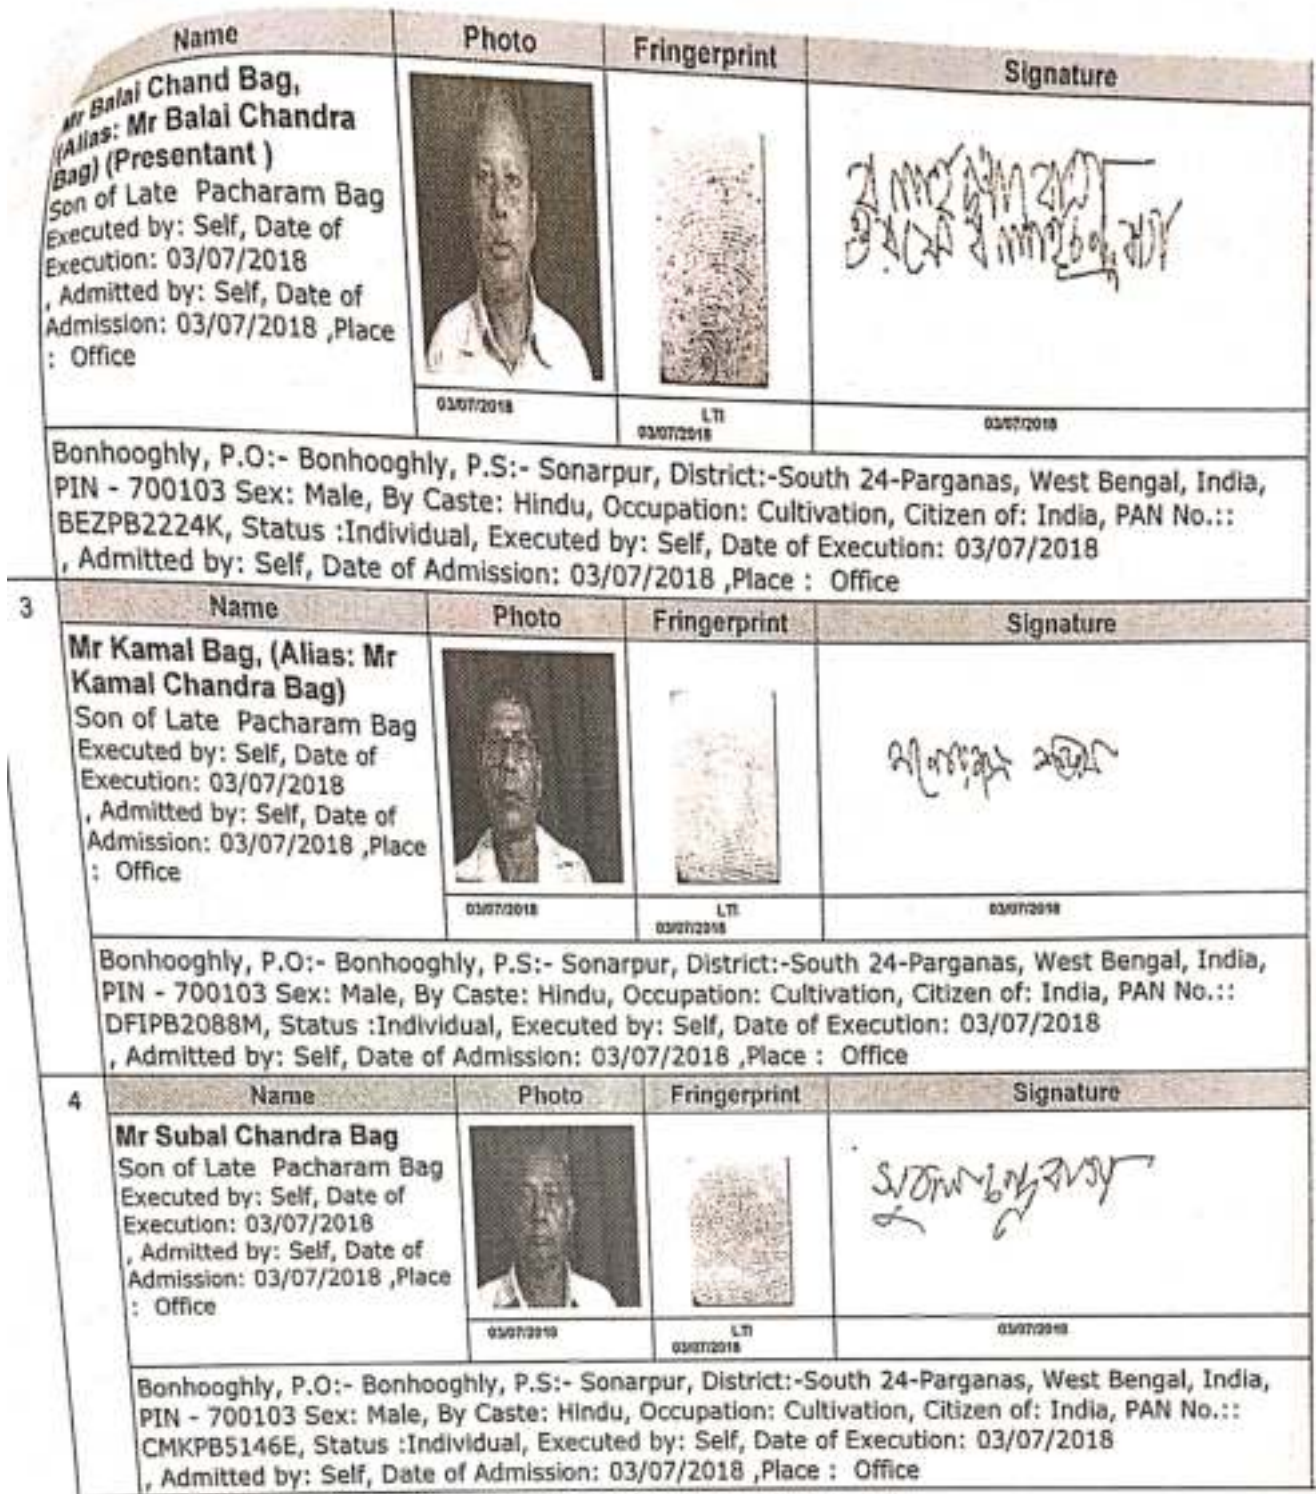 Name Photo Fringerprint Signature
Mr Balai Chand Bag,
(Alias: Mr Balai Chandra
Bag) (Presentant )
Son of Late Pacharam Bag
Executed by: Self, Date of
Execution: 03/07/2018
, Admitted by: Self, Date of
Admission: 03/07/2018 ,Place
: Office
03/07/2018 LTI 03/07/2018
03/07/2018
Bonhooghly, P.O:- Bonhooghly, P.S:- Sonarpur, District:-South 24-Parganas, West Bengal, India,
PIN - 700103 Sex: Male, By Caste: Hindu, Occupation: Cultivation, Citizen of: India, PAN No.::
BEZPB2224K, Status :Individual, Executed by: Self, Date of Execution: 03/07/2018
, Admitted by: Self, Date of Admission: 03/07/2018 ,Place : Office
3 Name Photo Fringerprint Signature
Mr Kamal Bag, (Alias: Mr
Kamal Chandra Bag)
Son of Late Pacharam Bag
Executed by: Self, Date of
Execution: 03/07/2018
, Admitted by: Self, Date of
Admission: 03/07/2018 ,Place
: Office
03/07/2018 LTI 03/07/2018
03/07/2018
Bonhooghly, P.O:- Bonhooghly, P.S:- Sonarpur, District:-South 24-Parganas, West Bengal, India,
PIN - 700103 Sex: Male, By Caste: Hindu, Occupation: Cultivation, Citizen of: India, PAN No.::
DFIPB2088M, Status :Individual, Executed by: Self, Date of Execution: 03/07/2018
, Admitted by: Self, Date of Admission: 03/07/2018 ,Place : Office
4 Name Photo Fringerprint Signature
Mr Subal Chandra Bag
Son of Late Pacharam Bag
Executed by: Self, Date of
Execution: 03/07/2018
, Admitted by: Self, Date of
Admission: 03/07/2018 ,Place
: Office
সুবল চন্দ্র বাগ
03/07/2018 LTI 03/07/2018
03/07/2018
Bonhooghly, P.O:- Bonhooghly, P.S:- Sonarpur, District:-South 24-Parganas, West Bengal, India,
PIN - 700103 Sex: Male, By Caste: Hindu, Occupation: Cultivation, Citizen of: India, PAN No.::
CMKPB5146E, Status :Individual, Executed by: Self, Date of Execution: 03/07/2018
, Admitted by: Self, Date of Admission: 03/07/2018 ,Place : Office